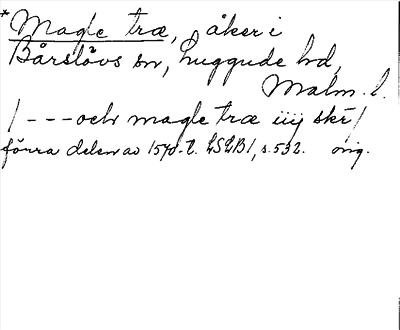 * Magle træ, åker i
Bårslövs sn, Luggude hd,
Malm. l.
/ --- och magle træ iiij skr/
förra delen av 1570-t. LSLB1, s. 532. orig.